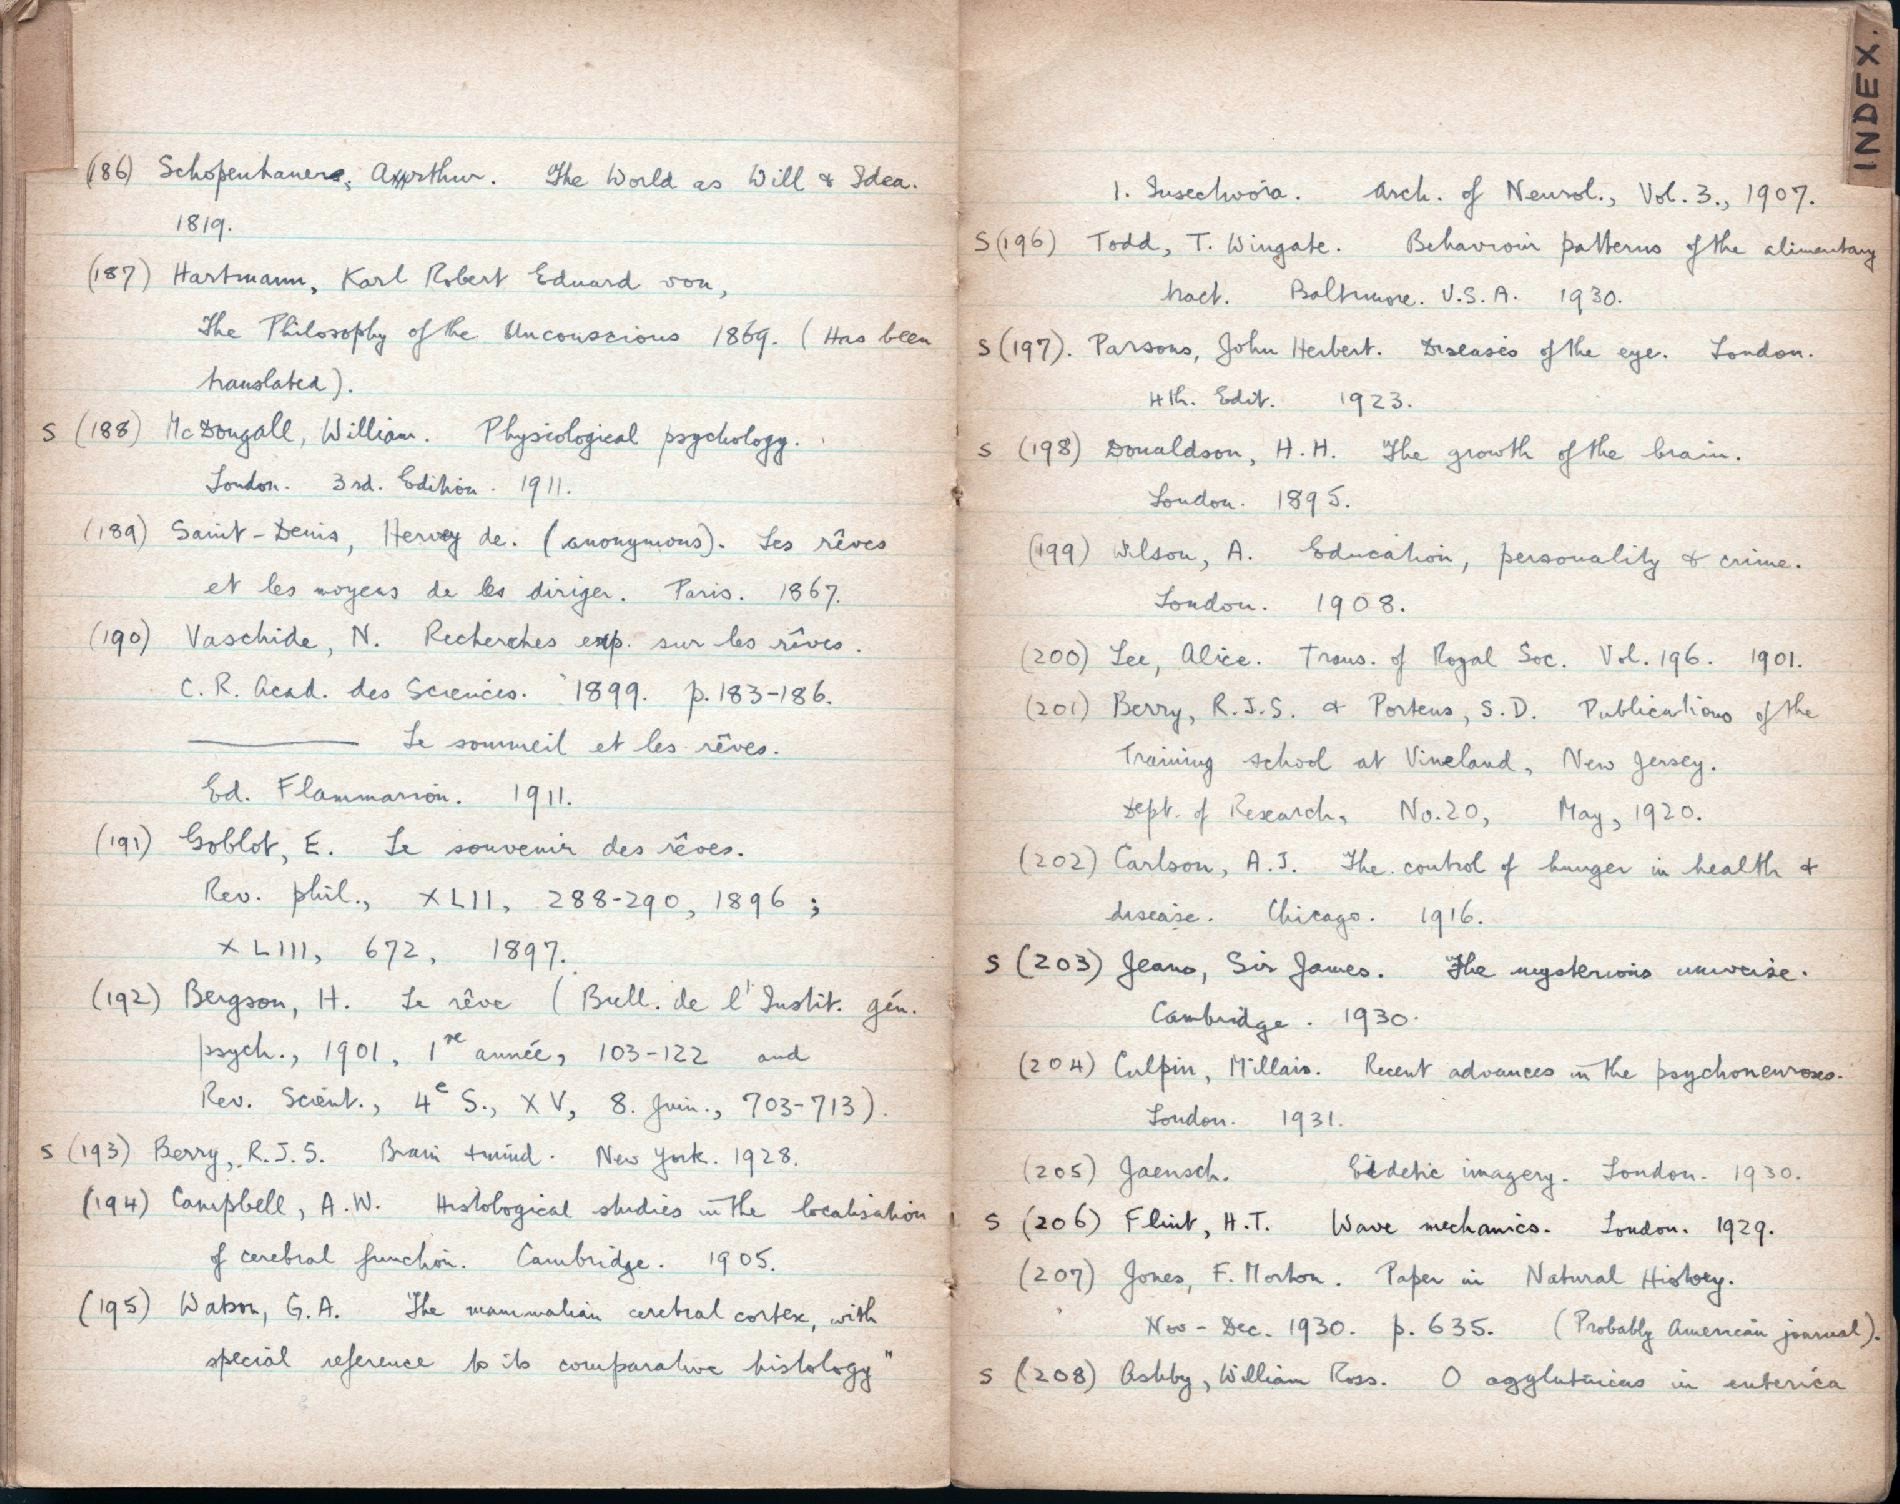 (186) Schopenhauer, Arthur. The World as Will & Idea.
1819.
(187) Hartmann, Karl Robert Eduard von,
The Philosophy of the Unconscious 1869. (Has been
translated).
S (188) McDougall, William. Physiological psychology.
London. 3rd. Edition. 1911.
(189) Saint-Denis, Hervey de. (anonymous). Les rêves
et les moyens de les diriger. Paris. 1867.
(190) Vaschide, N. Recherches exp. sur les rêves.
C. R. Acad. des Sciences. 1899. p. 183-186.
Le sommeil et les rêves.
Ed. Flammarion. 1911.
(191) Goblot, E. Le souvenir des rêves.
Rev. phil., XLII, 288-290, 1896 ;
XLIII, 672, 1897.
(192) Bergson, H. Le rêve (Bull. de l'Instit. gén.
psych., 1901, 1re année, 103-122 and
Rev. Scient., 4e S., XV, 8. Juin., 703-713).
S (193) Berry, R.J.S. Brain & mind. New York. 1928.
(194) Campbell, A.W. Histological studies in the localisation
of cerebral function. Cambridge. 1905.
(195) Watson, G.A. The mammalian cerebral cortex, with
special reference to its comparative histology"
INDEX.
1. Insectivora. Arch. of Neurol., Vol. 3., 1907.
S (196) Todd, T. Wingate. Behaviour patterns of the alimentary
tract. Baltimore. U.S.A. 1930.
S (197). Parsons, John Herbert. Diseases of the eye. London.
4th. Edit. 1923.
S (198) Donaldson, H.H. The growth of the brain.
London. 1895.
(199) Wilson, A. Education, personality & crime.
London. 1908.
(200) Lee, Alice. Trans. of Royal Soc. Vol. 196. 1901.
(201) Berry, R.J.S. & Porteus, S.D. Publications of the
Training school at Vineland, New Jersey.
Dept. of Research, No. 20, May, 1920.
(202) Carlson, A.J. The control of hunger in health &
disease. Chicago. 1916.
S (203) Jeans, Sir James. The mysterious universe.
Cambridge. 1930.
(204) Culpin, Millais. Recent advances in the psychoneuroses.
London. 1931.
(205) Jaensch. Eidetic imagery. London. 1930.
S (206) Flint, H.T. Wave mechanics. London. 1929.
(207) Jones, F. Morton. Paper in Natural History.
Nov - Dec. 1930. p. 635. (Probably American journal).
S (208) Ashby, William Ross. O agglutinins in enterica